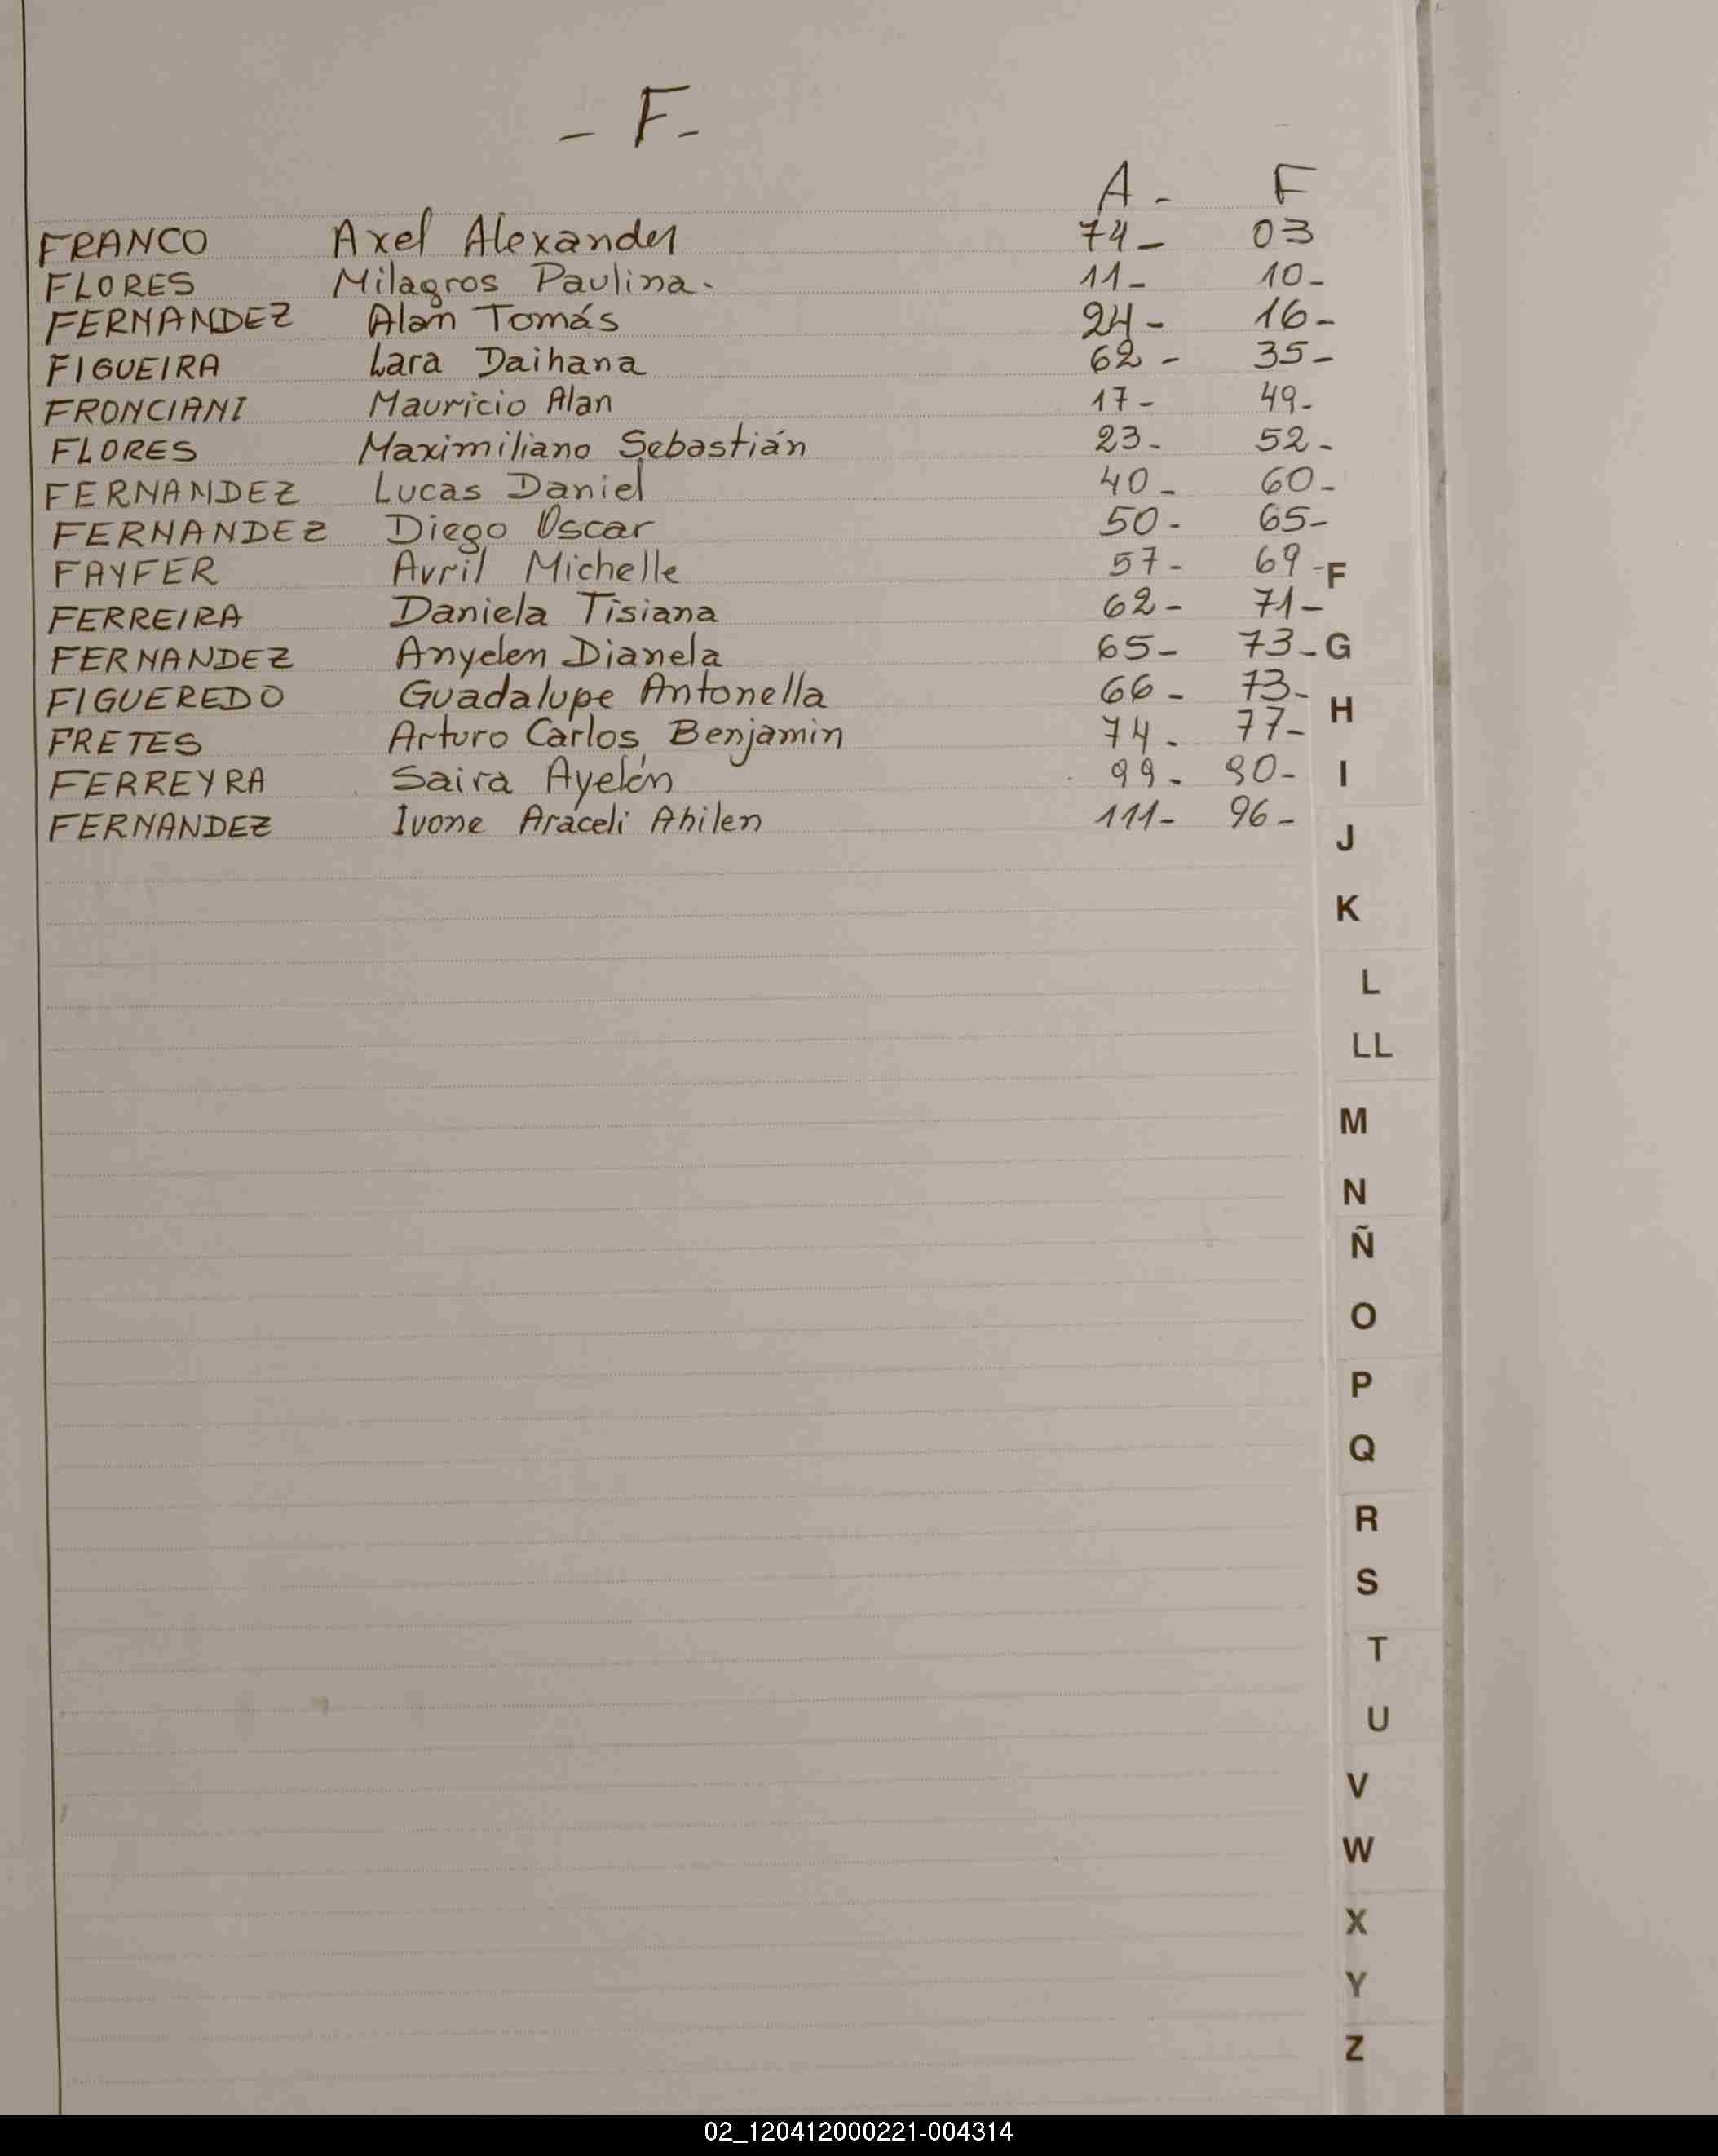 - F -
A - F
FRANCO Axel Alexander 74 - 03
FLORES Milagros Paulina. 11 - 10 -
FERNANDEZ Alan Tomás 24 - 16 -
FIGUEIRA Lara Daihana 62 - 35 -
FRONCIANI Mauricio Alan 17 - 49 -
FLORES Maximiliano Sebastián 23 - 52 -
FERNANDEZ Lucas Daniel 40 - 60 -
FERNANDEZ Diego Oscar 50 - 65 -
FAYFER Avril Michelle 57 - 69 -
F
FERREIRA Daniela Tisiana 62 - 71 -
FERNANDEZ Anyelen Dianela 65 - 73 -
G
FIGUEREDO Guadalupe Antonella 66 - 73 -
H
FRETES Arturo Carlos Benjamin 74 - 77 -
FERREYRA Saira Ayelén 99 - 90 -
I
FERNANDEZ Ivone Araceli Ahilen 111 - 96 -
J
K
L
LL
M
N
Ñ
O
P
Q
R
S
T
U
V
W
X
Y
Z
02_120412000221-004314